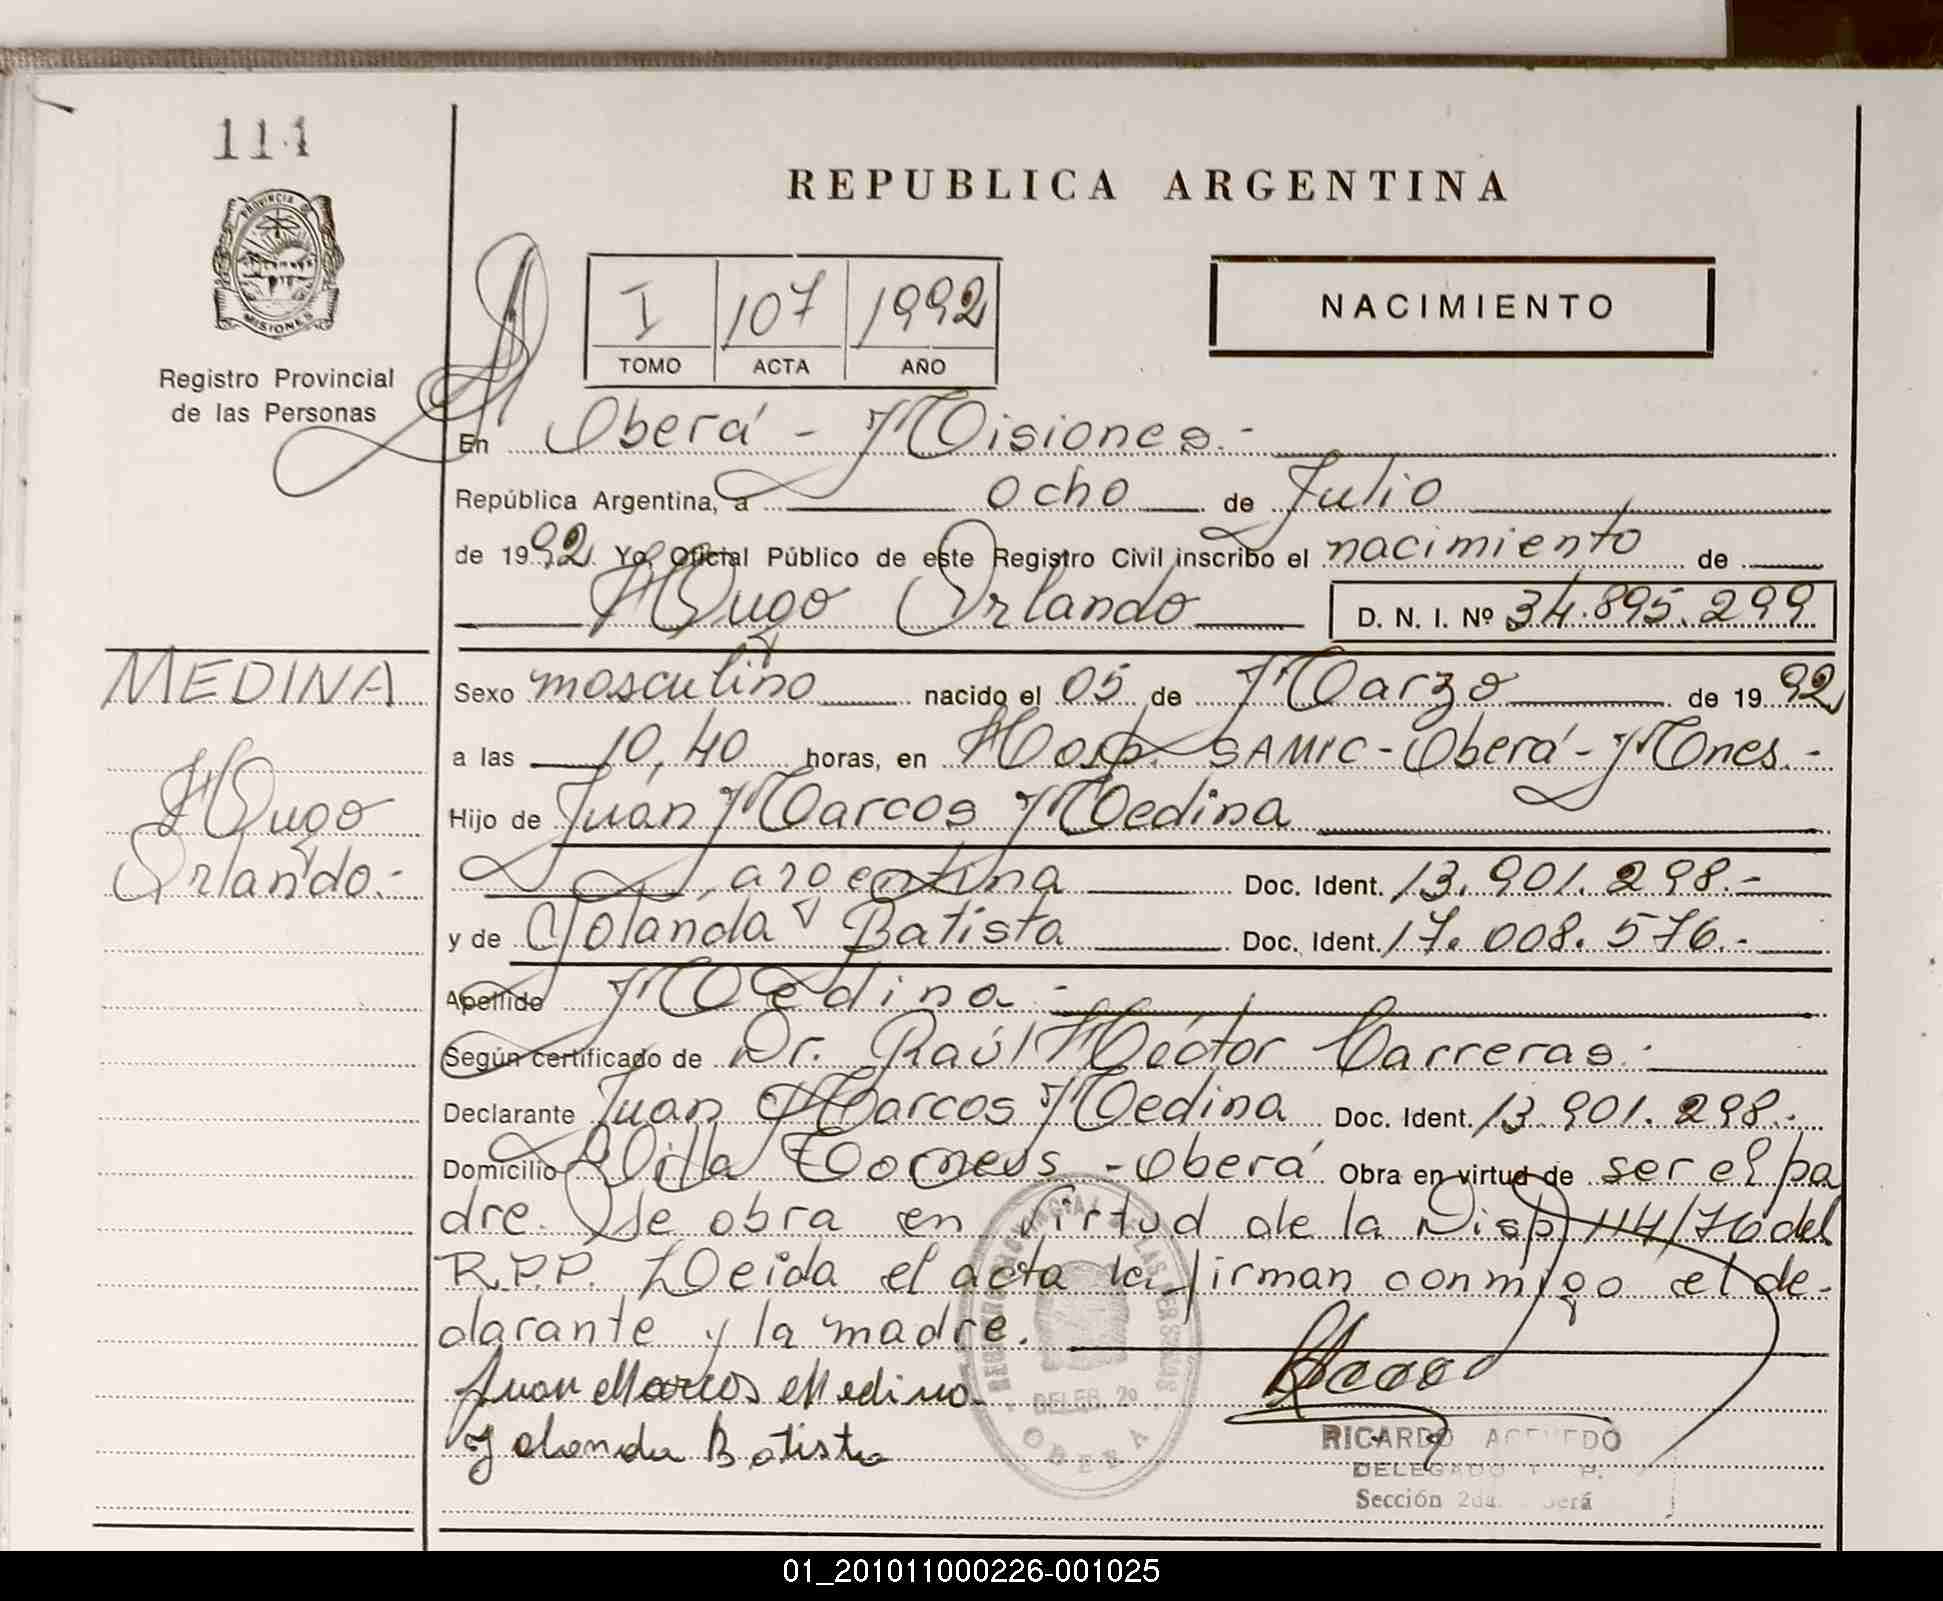 114
REPUBLICA ARGENTINA
PROVINCIA DE
MISIONES
Registro Provincial
de las Personas
I 107 1992
TOMO ACTA AÑO
NACIMIENTO
En Oberá - Misiones.-
República Argentina, a ocho de Julio
de 1992. Yo, Oficial Público de este Registro Civil inscribo el nacimiento de
Hugo Orlando D. N. I. Nº 34.895.299
MEDINA
Hugo
Orlando.-
Sexo masculino nacido el 05 de Marzo de 1992
a las 10,40 horas, en Hosp. SAMIC - Oberá - Mnes.-
Hijo de Juan Marcos Medina
argentina Doc. Ident. 13.901.298.-
y de Yolanda Batista Doc. Ident. 17.008.576.-
Apellido Medina.-
Según certificado de Dr. Raúl Héctor Carreras.-
Declarante Juan Marcos Medina Doc. Ident. 13.901.298.-
Domicilio Villa - Oberá Obra en virtud de ser el pa
dre. Se obra en virtud de la Disp. 114/76 del
R.P.P. Leida el acta la firman conmigo el de-
clarante y la madre.
Juan Marcos Medina
Yolanda Batista
REGISTRO PROVINCIAL DE LAS PERSONAS
DELEG. 2º
OBERA
RICARDO ACEVEDO
DELEGADO
Sección 2da.
01_201011000226-001025